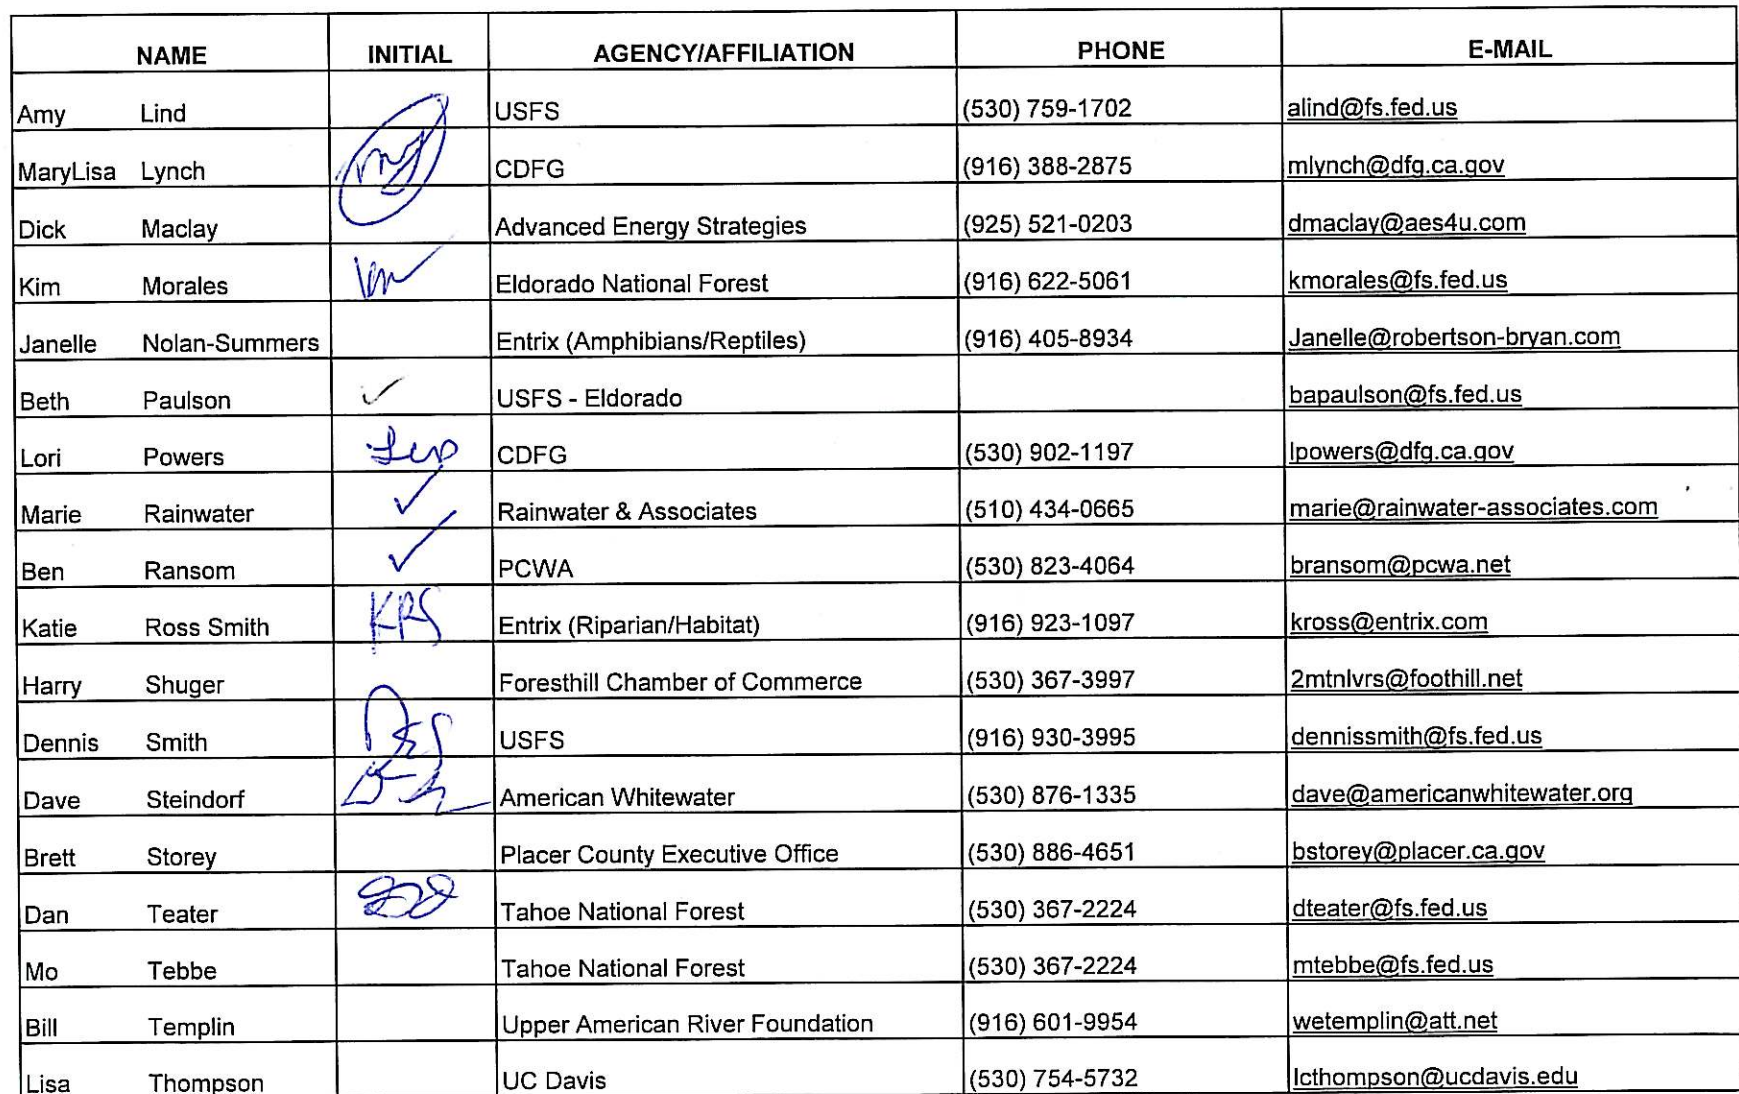 NAME INITIAL AGENCY/AFFILIATION PHONE E-MAIL
Amy Lind USFS (530) 759-1702 alind@fs.fed.us
MaryLisa Lynch CDFG (916) 388-2875 mlynch@dfg.ca.gov
Dick Maclay Advanced Energy Strategies (925) 521-0203 dmaclay@aes4u.com
Kim Morales Eldorado National Forest (916) 622-5061 kmorales@fs.fed.us
Janelle Nolan-Summers Entrix (Amphibians/Reptiles) (916) 405-8934 Janelle@robertson-bryan.com
Beth Paulson ✓ USFS - Eldorado bapaulson@fs.fed.us
Lori Powers CDFG (530) 902-1197 lpowers@dfg.ca.gov
Marie Rainwater ✓ Rainwater & Associates (510) 434-0665 marie@rainwater-associates.com
Ben Ransom ✓ PCWA (530) 823-4064 bransom@pcwa.net
Katie Ross Smith KRS Entrix (Riparian/Habitat) (916) 923-1097 kross@entrix.com
Harry Shuger Foresthill Chamber of Commerce (530) 367-3997 2mtnlvrs@foothill.net
Dennis Smith USFS (916) 930-3995 dennissmith@fs.fed.us
Dave Steindorf American Whitewater (530) 876-1335 dave@americanwhitewater.org
Brett Storey Placer County Executive Office (530) 886-4651 bstorey@placer.ca.gov
Dan Teater Tahoe National Forest (530) 367-2224 dteater@fs.fed.us
Mo Tebbe Tahoe National Forest (530) 367-2224 mtebbe@fs.fed.us
Bill Templin Upper American River Foundation (916) 601-9954 wetemplin@att.net
Lisa Thompson UC Davis (530) 754-5732 lcthompson@ucdavis.edu